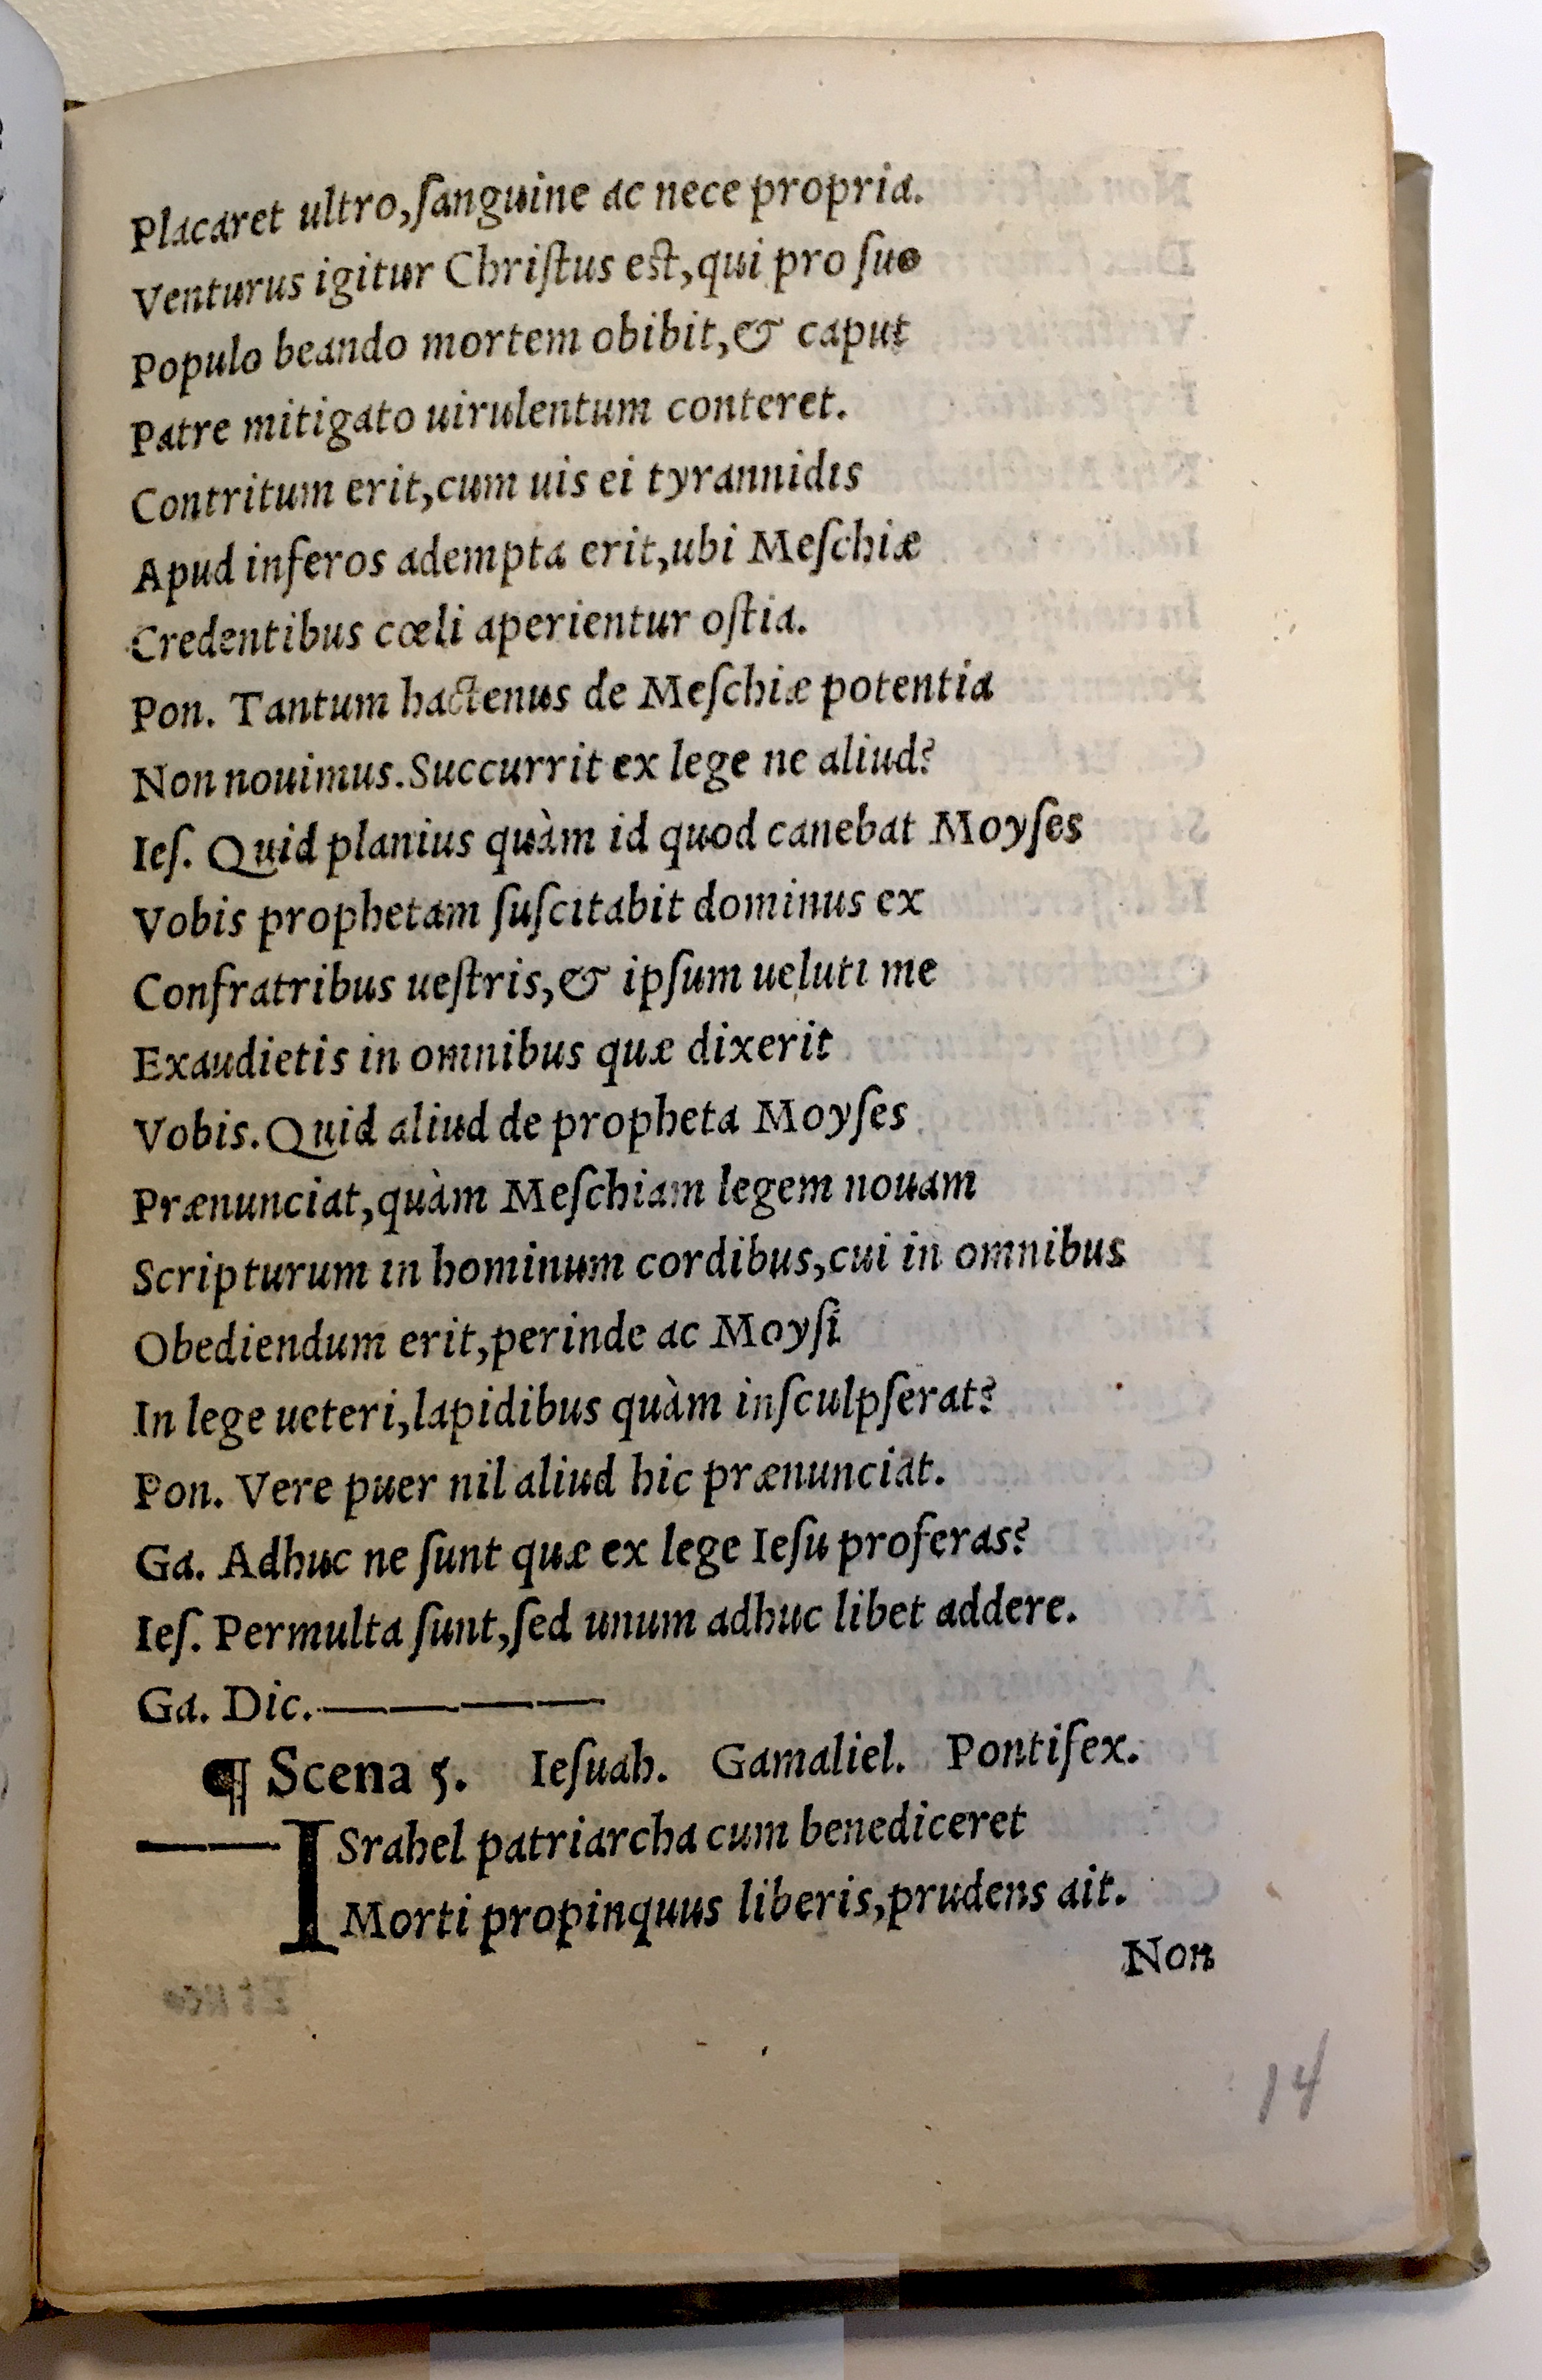 Placaret ultro,ſanguine ac nece propria.
Venturus igitur Chriſtus eſt,qui pro ſuo
Populo beando mortem obibit,& caput
Patre mitigato uirulentum conteret.
Contritum erit,cum uis ei tyrannidis
Apud inferos adempta erit,ubi Meſchiæ
Credentibus cœli aperientur oſtia.
Pon. Tantum hactenus de Meſchiæ potentia
Non nouimus.Succurrit ex lege ne aliud?
Ieſ. Quid planius quàm id quod canebat Moyſes
Vobis prophetam ſuſcitabit dominus ex
Confratribus ueſtris,& ipſum ueluti me
Exaudietis in omnibus quæ dixerit
Vobis.Quid aliud de propheta Moyſes
Prænunciat,quàm Meſchiam legem nouam
Scripturum in hominum cordibus,cui in omnibus
Obediendum erit,perinde ac Moyſi
In lege ueteri,lapidibus quàm inſculpſerat?
Pon. Vere puer nil aliud hic prænunciat.
Ga. Adhuc ne ſunt quæ ex lege Ieſu proferas?
Ieſ. Permulta ſunt,ſed unum adhuc libet addere.
Ga. Dic.————
¶ Scena 5. Ieſuah. Gamaliel. Pontifex.
——ISrahel patriarcha cum benediceret
Morti propinquus liberis,prudens ait.
Non
14